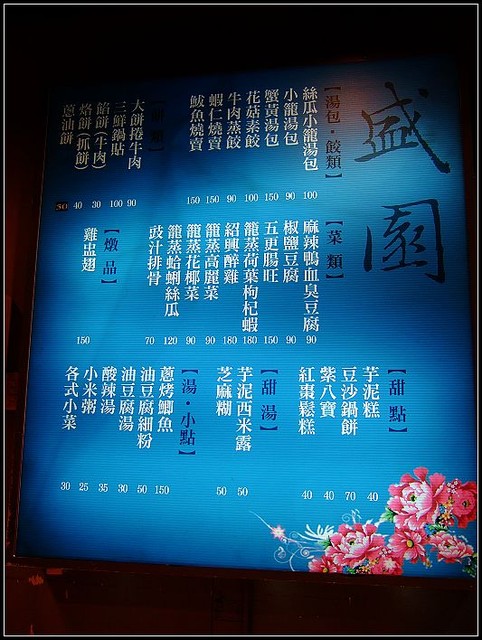 盛園
【湯包·餃類】
絲瓜小籠湯包 100
小籠湯包 90
蟹黃湯包 150
花菇素餃 100
牛肉蒸餃 90
蝦仁燒賣 150
鮁魚燒賣 150
大餅捲牛肉 90
三鮮鍋貼 100
餡餅(牛肉) 30
烙餅(抓餅) 40
蔥油餅 30
【菜類】
麻辣鴨血臭豆腐 90
椒鹽豆腐 90
五更腸旺 150
籠蒸荷葉枸杞蝦 180
紹興醉雞 180
籠蒸高麗菜 90
籠蒸花椰菜 90
籠蒸蛤蜊絲瓜 120
豉汁排骨 70
【燉品】
雞盅翅 150
【甜點】
芋泥糕 40
豆沙鍋餅 70
紫八寶 40
紅棗鬆糕 40
【甜湯】
芋泥西米露 50
芝麻糊 50
【湯·小點】
蔥烤鯽魚 150
油豆腐細粉 50
油豆腐湯 30
酸辣湯 35
小米粥 25
各式小菜 30